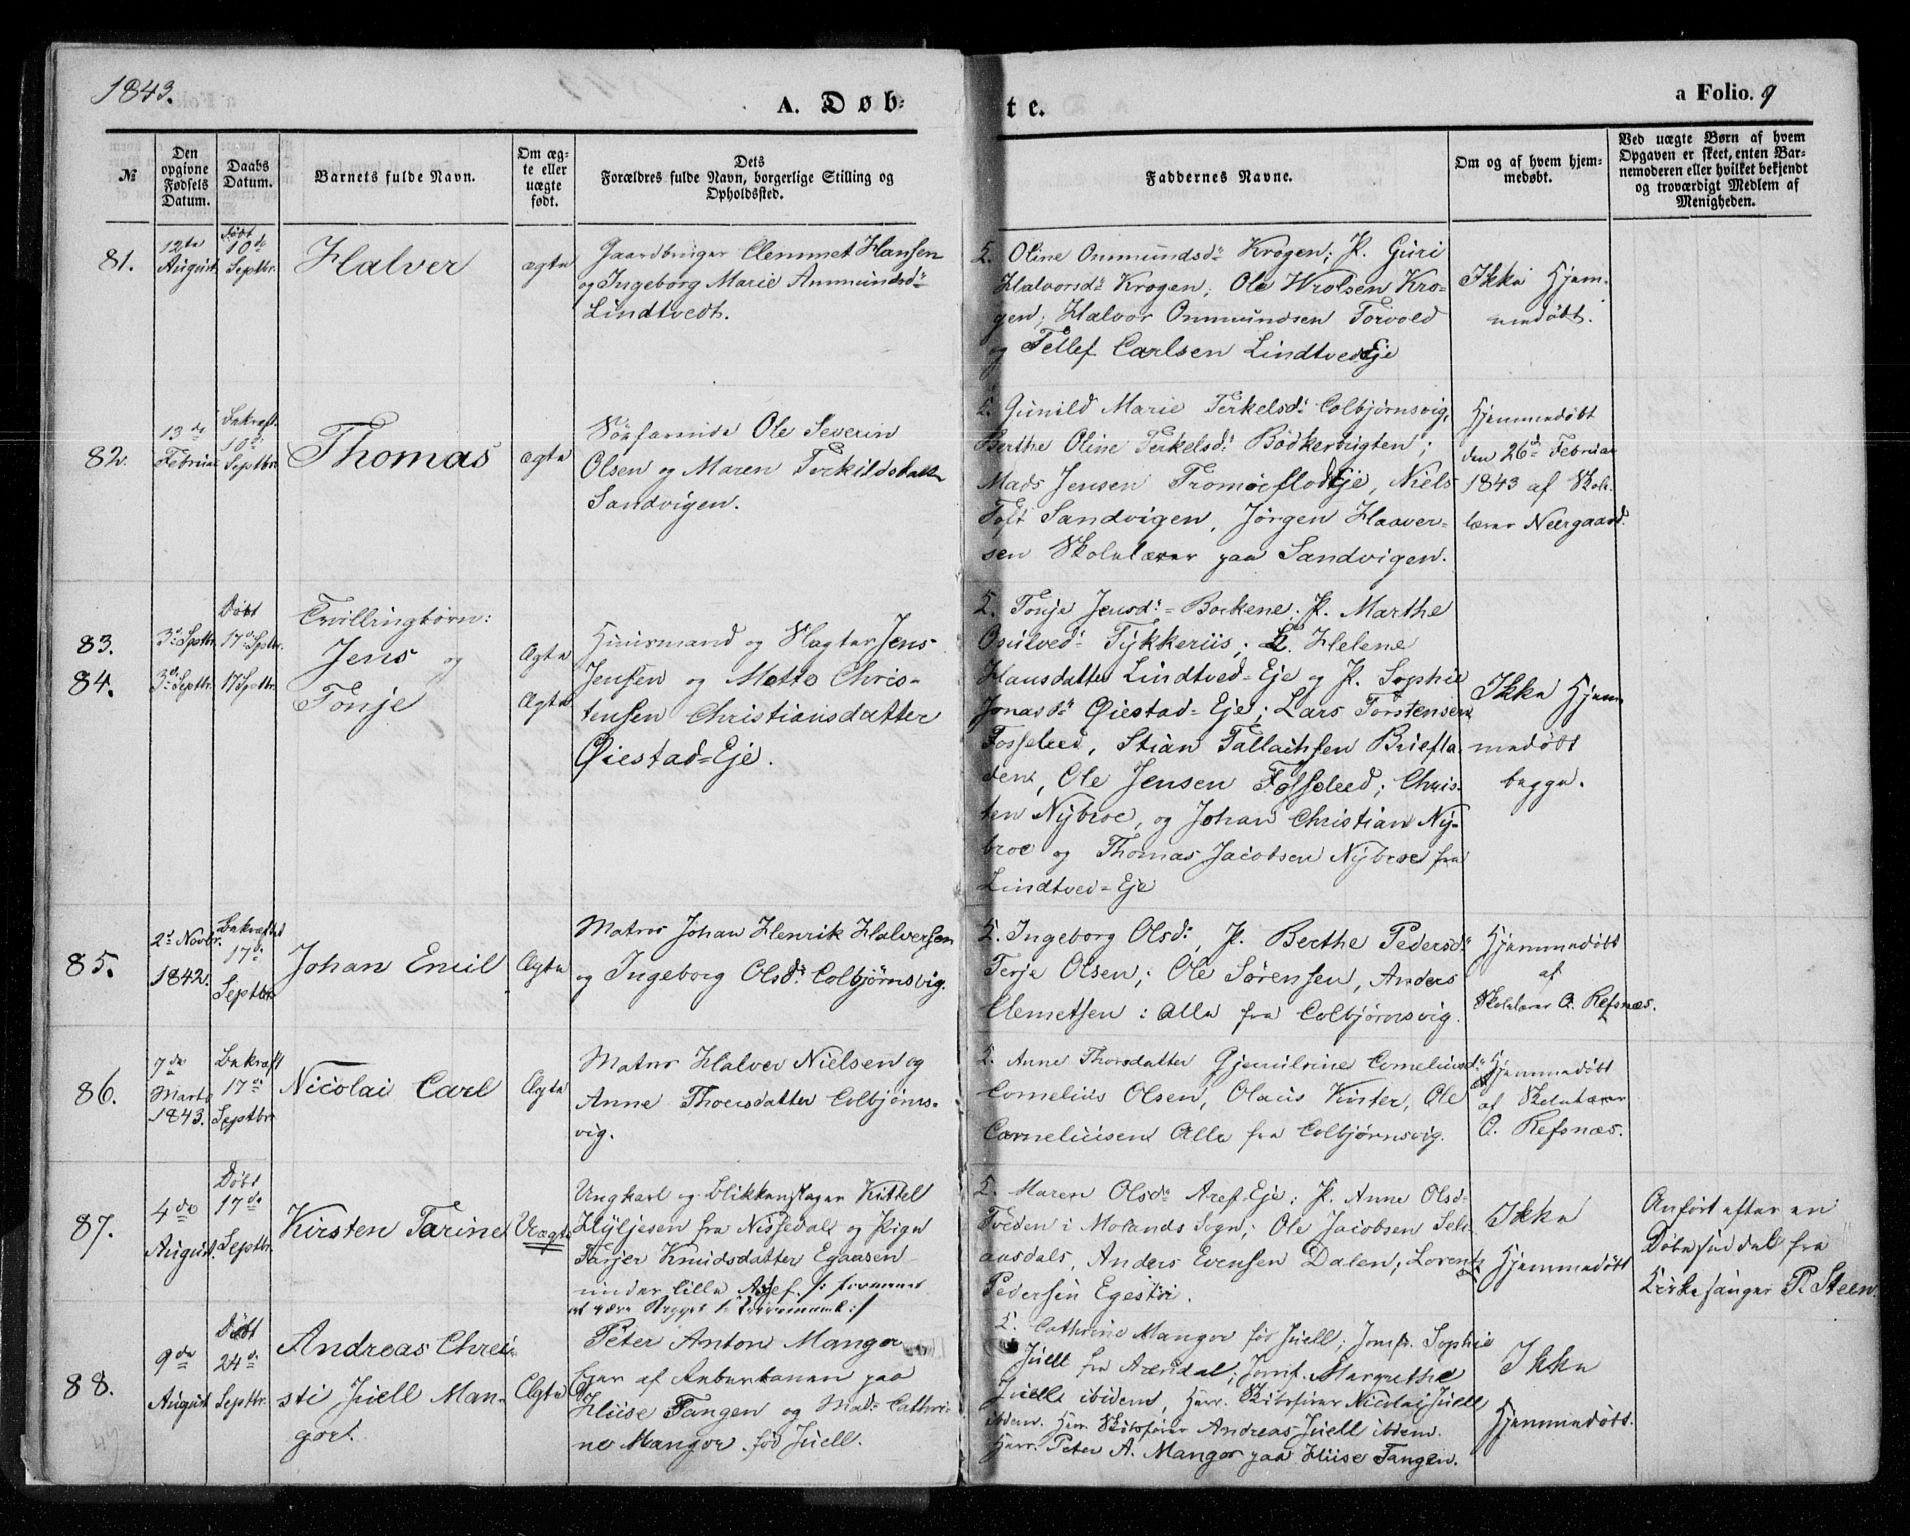 1843.
A. Døb=
te.
a Folio. 9
№
Den opgivne Fødsels Datum.
Daabs Datum.
Barnets fulde Navn.
Om ægte eller uægte født.
Dets Forældres fulde Navn, borgerlige Stilling og Opholdssted.
Faddernes Navne.
Om og af hvem hjemmedøbt.
Ved uægte Børn af hvem Opgaven er skeet, enten Barnemoderen eller hvilket bekjendt og troværdigt Medlem af Menigheden.
81.
12te
August
Døbt
10de
Septbr.
Halver
ægte
Gaardbruger Clemmet Hansen
og Ingeborg Marie Anmundsdr
Lindtvedt.
Oline Onmundsdr Krogen; P. Guri
Halvorsdr Krogen; Ole Wrolsen Kro=
gen; Halvor Onmundsen Torvold
og Tellef Carlsen Lindtved Eje
Ikke Hjem=
medøbt.
82.
13de
Februar
Bekræft.
10de
Septbr.
Thomas
ægte
Søefarende Ole Severin
Olsen og Maren Terkildsdatter
Sandvigen.
Gunild Marie Terkelsdr Colbjørnsvig,
Berthe Oline Terkelsdr Bødkerbugten;
Mads Jensen Tromøeflod Eje, Niels
Toft Sandvigen, Jørgen Haaver=
sen Skolelærer paa Sandvigen.
Hjemmedøbt
den 26de Februar
1843 af Skole
lærer Neergaard.
83.
84.
3de Septbr.
3de Septbr.
Døbt
17de Septbr.
17 Septbr.
Tvillingbørn:
Jens og
Tonje
Ægte
Ægte
Huusmand og Slagter Jens
Jensen og Mette Chris=
tensen Christiansdatter
Øiestad=Eje.
Tonje Jensdr= Bockene; P. Marthe
Osulvedr Tykkeriis; Q. Helene
Hansdatter Lindtved=Eje og P. Sophie
Jonasdr Øiestad=Eje; Lars Torstensen
Fosseleed, Stian Tallachsen Briefla
dene, Ole Jensen Fosseleed; Chris=
ten Nybroe, og Johan Christian Ny=
broe og Thomas Jacobsen Nybroe fra
Lindtved=Eje
Ikke Hjem
medøbt
begge.
85.
2d Novbr.
1842.
Bekræftet
17de
Septbr
Johan Emil
Ægte
Matros Johan Henrik Halversen
og Ingeborg Olsdr Colbjørnsvig.
Ingeborg Olsdr, P. Berthe Pedersdr
Terje Olsen; Ole Sørensen, Anders
Clemetsen: Alle fra Colbjørnsvig.
Hjemmedøbt
af
Skolelærer O. Refsnæs.
86.
7de
Marts
1843.
Bekræft
17de
Septbr
Nicolai Carl
Ægte
Matros Halver Nielsen og
Anne Thorsdatter Colbjørns=
vig.
Anne Thorsdatter Corneliusdr
Cornelius Olsen, Olaus Kister, Ole
Corneliusen Alle fra Colbjørnsvig.
Hjemmedøbt
af Skolelærer
O. Refsnæs.
87.
4de
August.
Døbt
17de
Septbr.
Kirsten Tarine
Uægte
Ungkarl og Blikkenslager Kittel
Hyljesen fra Nissedal og Pige
Tarjer Knudsdatter Egaasen
under lille Assef
Maren Olsdr Aref=Eje; P. Anne Olsd=
Tveden i Molands Sogn; Ole Jacobsen Sele
aasdals, Anders Evensen Dalen; Lorentz
Pedersen Egestøi.
Ikke
Hjemmedøbt
Anført efter en
Døbeseddel fra
Kirkesanger P. Steen.
88.
9de
August
Døbt
24de
Septbr.
Andreas Chrei=
sti Juell Man=
gor.
Ægte
Peter Anton Mangor
Eier af paa
Hiise Tangen og Mad: Cathri
ne Mangor. fød Juell.
Cathrine Mangor fød Juell; Jomfr. Sophie
Juell fra Arendal; Jomf. Margrethe
Juell ibidem, Herr. Skibsfører Nicolai Juell
ibdem. Herr Skibsfører Andreas Juell ibdem.
Herr. Peter A. Mangor paa Hiise Tangen.
Ikke
Hjemmedøbt.